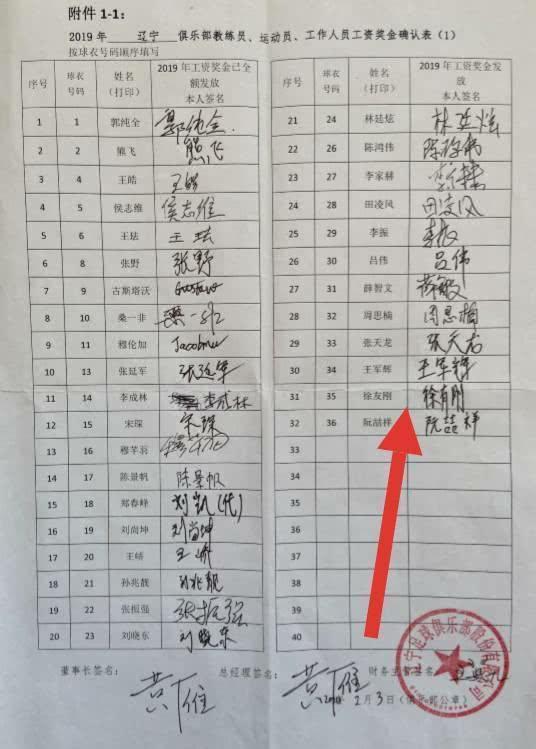 附件 1-1：
2019 年 辽宁 俱乐部教练员、运动员、工作人员工资奖金确认表（1）
按球衣号码顺序填写
序号 球衣号码 姓名（打印） 2019 年工资奖金已全额发放 本人签名
1 1 郭纯全 郭纯全
2 2 熊飞 熊飞
3 4 王皓 王皓
4 5 侯志维 侯志维
5 6 王珐 王珐
6 8 张野 张野
7 9 古斯塔沃 Gustavo
8 10 桑一非 桑一非
9 11 穆伦加 Jacobmu
10 13 张延军 张延军
11 14 李成林 李成林
12 15 宋琛 宋琛
13 16 穆芊羽
14 17 陈景帆 陈景帆
15 18 郑春峰 刘凯（代）
16 19 刘尚坤 刘尚坤
17 20 王峤 王峤
18 21 孙兆靓 孙兆靓
19 22 张振强 张振强
20 23 刘晓东 刘晓东
序号 球衣号码 姓名（打印） 2019 年工资奖金发放 本人签名
21 24 林廷炫 林廷炫
22 26 陈鸿伟
23 27 李家赫
24 28 田凌风 田凌风
25 29 李振 李振
26 30 吕伟 吕伟
27 31 薛智文
28 32 周思楠 周思楠
29 33 张天龙 张天龙
30 34 王军辉 王军辉
31 35 徐友刚 徐有刚
32 36 阮喆祥 阮喆祥
33
34
35
36
37
38
39
40
董事长签名： 总经理签名： 财务主管签名
黄雁 黄雁
2月3日（俱乐部公章）
辽宁足球俱乐部股份有限公司